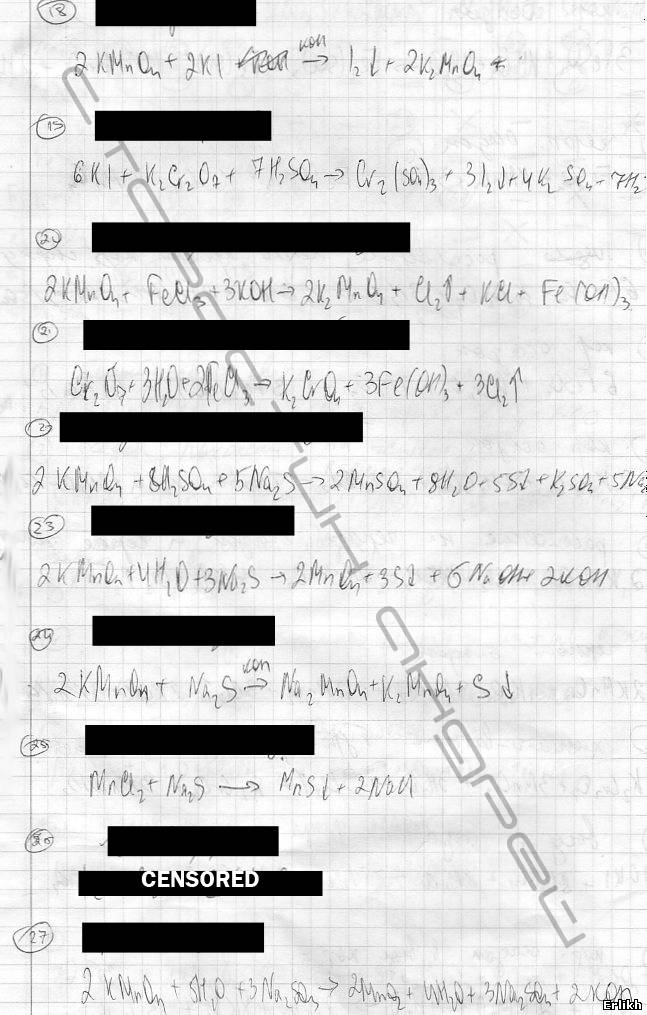 18
2KMnO4 + 2KI KOH → I2↓ + 2K2MnO4 +
19
6KI + K2Cr2O7 + 7H2SO4 → Cr2(SO4)3 + 3I2↓ + 4K2SO4 + 7H2
20
2KMnO4 + FeCl3 + 3KOH → 2K2MnO4 + Cl2↑ + KCl + Fe(OH)3
2
Cr2O7 + 3H2O + 2FeCl3 → K2CrO4 + 3Fe(OH)3 + 3Cl2↑
2
2KMnO4 + 8H2SO4 + 5Na2S → 2MnSO4 + 8H2O + 5S↓ + K2SO4 + 5Na2
23
2KMnO4 + 4H2O + 3Na2S → 2MnO4 + 3S↓ + 6NaOH + 2KOH
24
2KMnO4 + Na2S KOH → Na2MnO4 + K2MnO4 + S↓
25
MnCl2 + Na2S → MnS↓ + 2NaCl
26
CENSORED
27
2KMnO4 + 5H2O + 3Na2SO3 → 2MnO2 + 4H2O + 3Na2SO4 + 2KOH
Erlikh